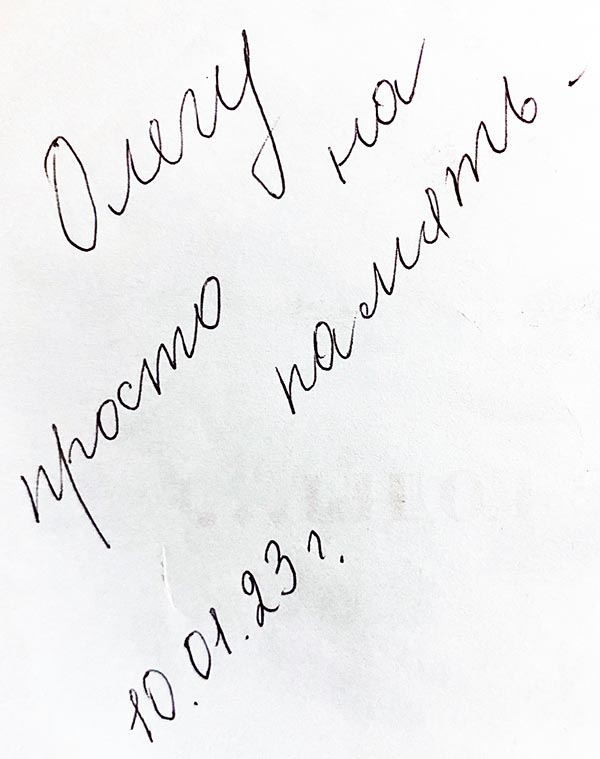 Олегу
просто на
память -
10.01.23 г.